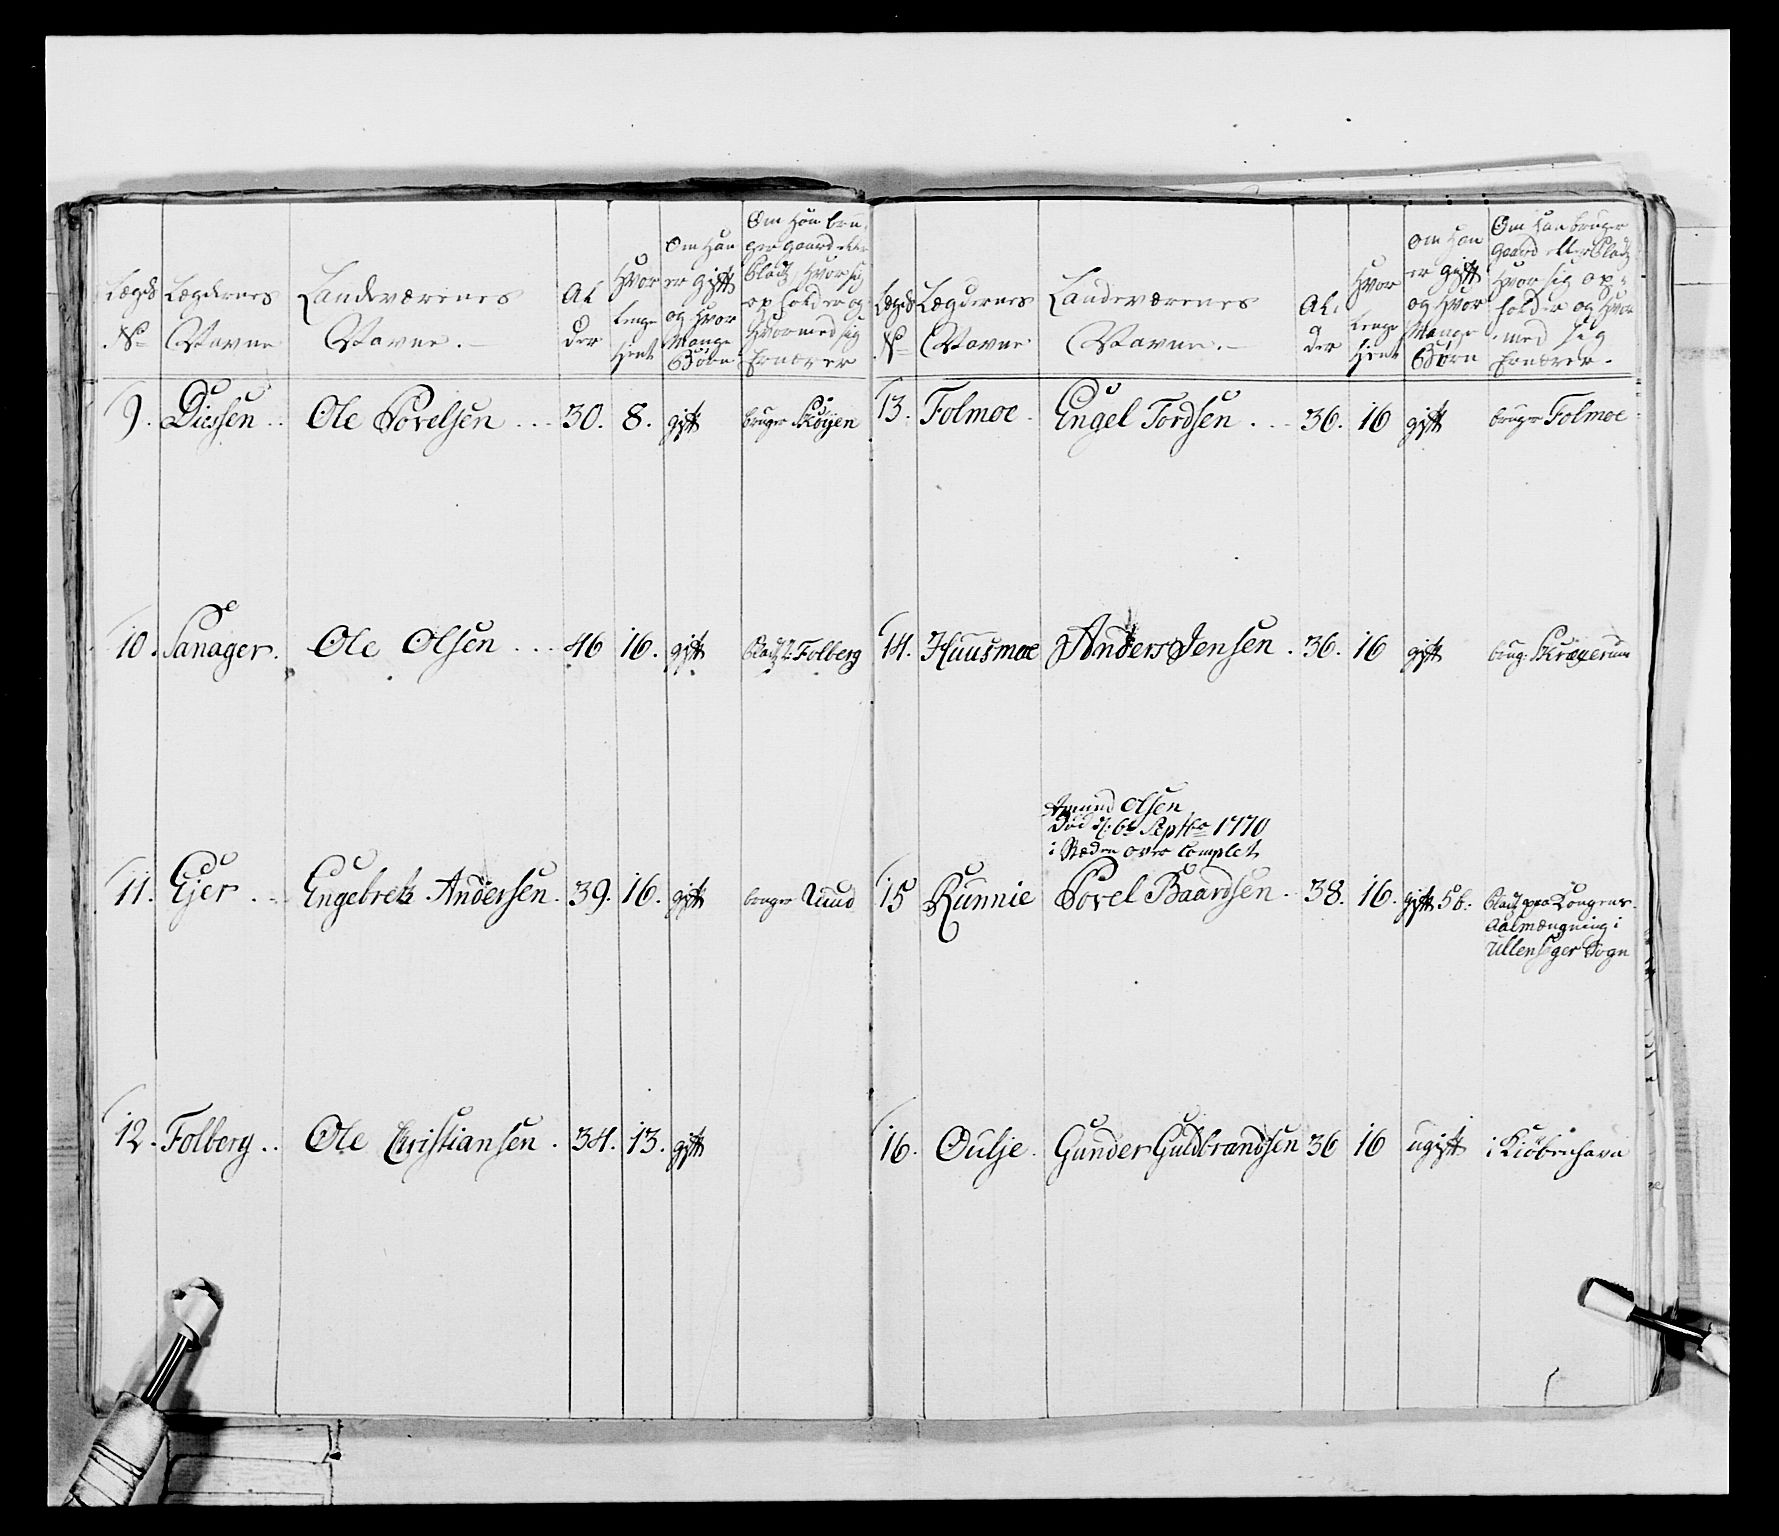 Lægds No
Lægdernes Navne
Landeværnes Navne.
Alder
Hvor lenge tient
Om Han er gift og Hvor Mange Børn
Om Han bruger gaard eller Pladtz Hvor sig opholder og Hvormed sig Ernærer
9. Diessen .. Ole Povelsen ... 30. 8. gift bruger Skøÿen
10. Sanager. Ole Olsen ... 46 16. gift Pladtz Folberg
11. Ejer Engebret Andersen. 39. 16. gift bruger Ruud
12. Folberg .. Ole Christiansen. 34. 13. gift
Lægds No
Lægdernes Navne
Landeværnes Navne.
Alder
Hvor lenge tient
Om Han er gift og Hvor Mange Børn
Om Han bruger Gaard eller Pladtz Hvor sig opholder og Hvormed sig Ernærer.
13. Folmoe. Engel Tordsen ... 36. 16 gift bruger Folmoe
14. Huusmoe Anders Jensen. 36. 16 gift brug: Skrøgerum
Amund Olsen
Død d: 6te Septbr 1770
i Stæden over Complet
15 Runnie Povel Baardsen. 38. 16. gift 5 b. Pladtz paa Kongens
Aalmængning i
Ullensager Sogn
16. Oulje. Gunder Guldbrandsen 36 16 ugift i Kiøbenhavn